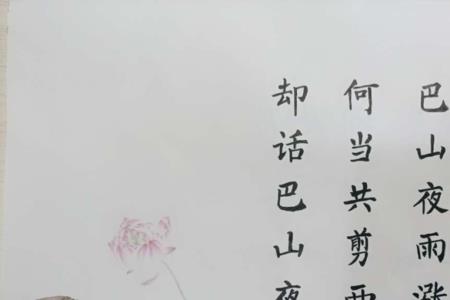 巴山夜雨涨
何当共剪西
却话巴山夜